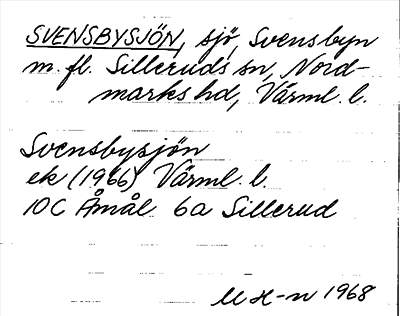 SVENSBYSJÖN, sjö, Svensbyn
m. fl. Silleruds sn, Nord-
marks hd, Värml. l.
Svensbysjön
ek (1966) Värml. l.
10C Åmål 6a Sillerud
M H-n 1968